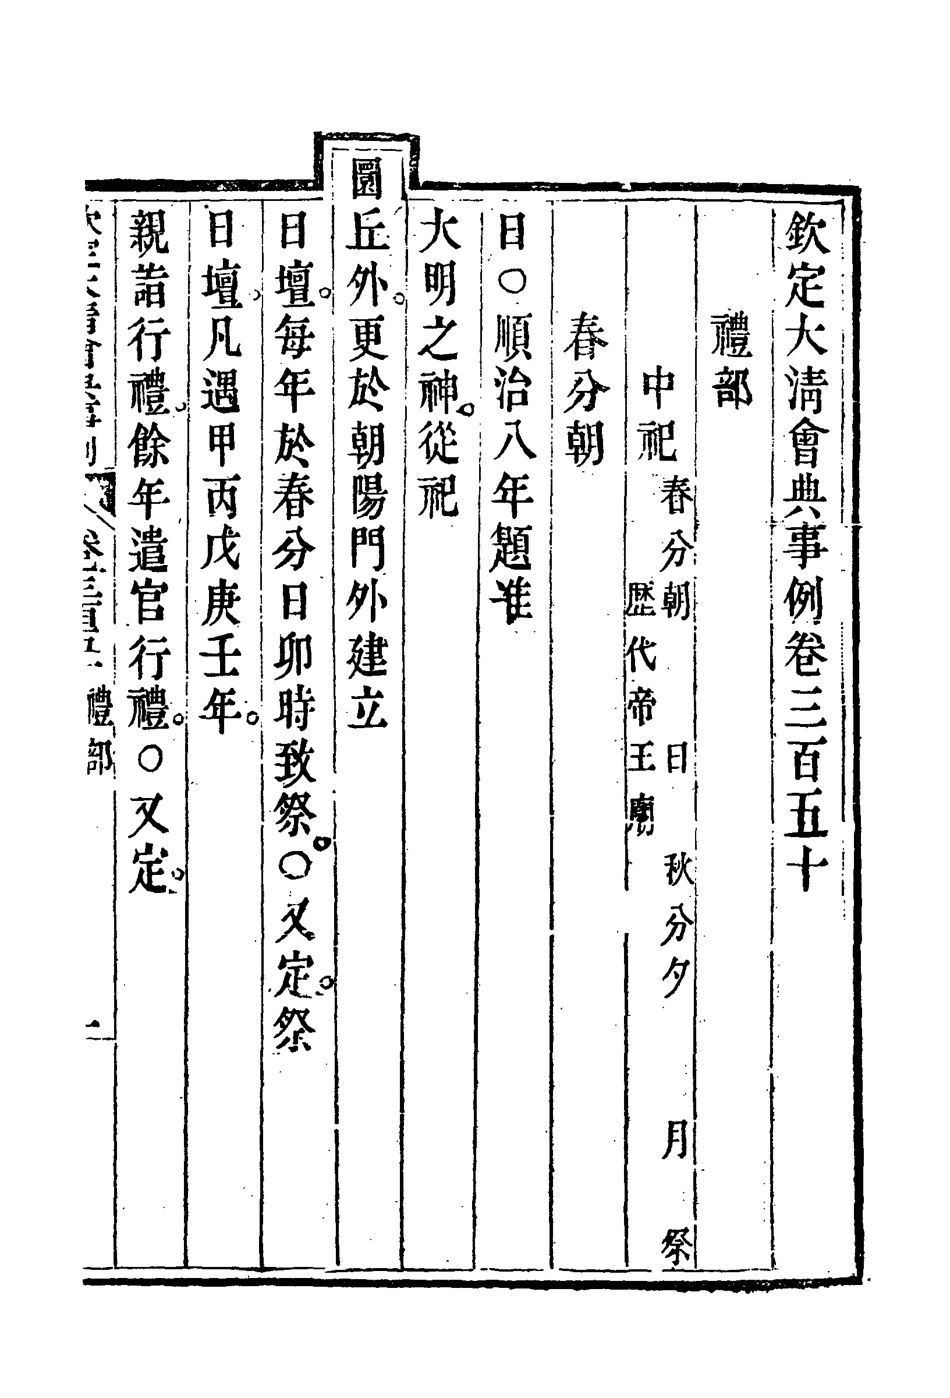 欽定大清會典事例卷三百五十
禮部
中祀 春分朝 日 秋分夕 月 祭
歷代帝王廟
春分朝
日○順治八年題准
大明之神。從祀
圜丘外。更於朝陽門外建立
日壇。每年於春分日卯時致祭。○又定。祭
日壇。凡遇甲丙戊庚壬年。
親詣行禮。餘年遣官行禮。○又定。
欽定大清會典事例 卷三百五十 禮部 一